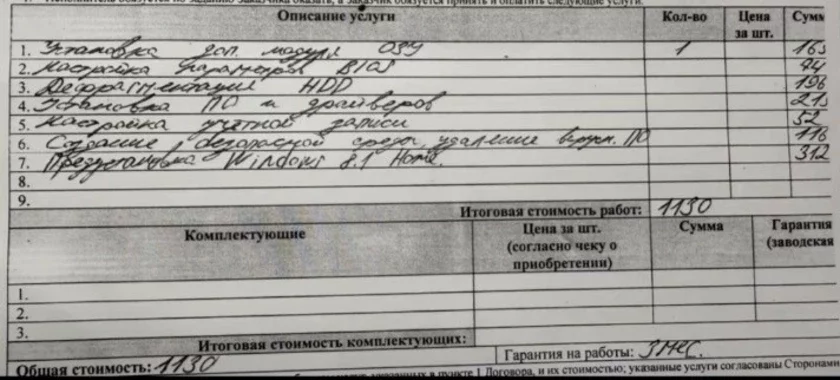 обязуется по заданию Заказчика оказать, а заказчик обязуется принять и оплатить следующие услуги.
Описание услуги Кол-во Цена за шт. Сумм
1. Установка доп. модуля ОЗУ 1 165
2. Настройка параметров BIOS 74
3. Дефрагментация HDD 196
4. Установка ПО и драйверов 215
5. Настройка учетной записи 52
6. Создание безопасной среды, удаление вирусн. ПО 116
7. Предустановка Windows 8.1 Home. 312
8.
9.
Итоговая стоимость работ: 1130
Комплектующие Цена за шт. (согласно чеку о приобретении) Сумма Гарантия (заводская
1.
2.
3.
Итоговая стоимость комплектующих:
Общая стоимость: 1130 Гарантия на работы: 3 мес.
указанных в пункте 1 Договора, и их стоимостью; указанные услуги согласованы Сторонами